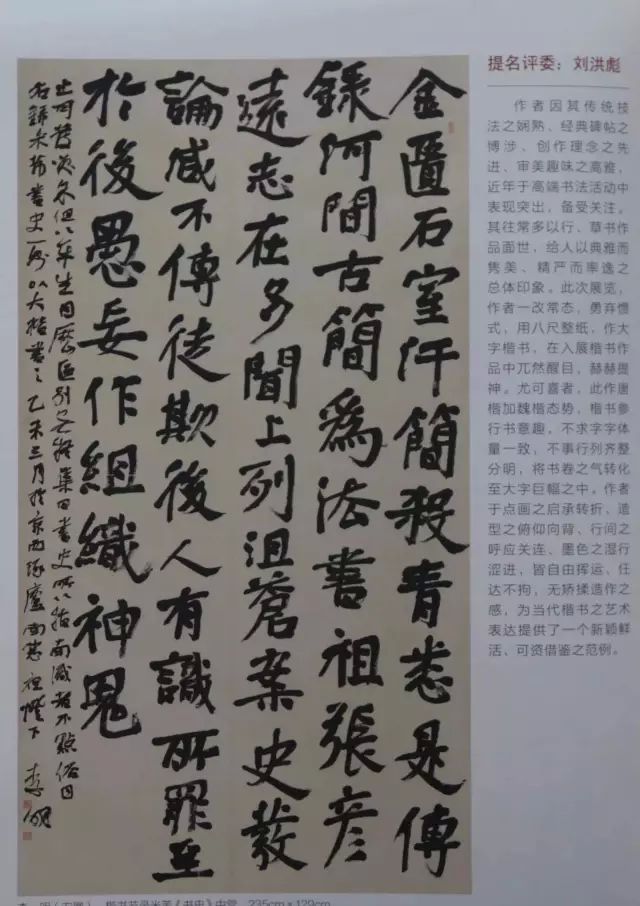 提名评委：刘洪彪
作者因其传统技
法之娴熟、经典碑帖之
博涉、创作理念之先
进、审美趣味之高雅，
近年于高端书法活动中
表现突出，备受关注。
其往常多以行、草书作
品面世，给人以典雅而
隽美、精严而率逸之
总体印象。此次展览，
作者一改常态，勇弃惯
式，用八尺整纸，作大
字楷书，在入展楷书作
品中兀然醒目，赫赫提
神。尤可喜者，此作唐
楷加魏楷态势，楷书参
行书意趣，不求字字体
量一致，不事行列齐整
分明，将书卷之气转化
至大字巨幅之中。作者
于点画之启承转折、造
型之俯仰向背、行间之
呼应关连、墨色之湿行
涩进，皆自由挥运、任
达不拘，无矫揉造作之
感，为当代楷书之艺术
表达提供了一个新颖鲜
活、可资借鉴之范例。
金匱石室汗簡殺青悉是傳
録河間古簡爲法書祖張彦
遠志在多聞上列沮蒼案史發
論咸不傳徒欺後人有識所罪至
於後愚妄作組織神鬼
止可發笑余但以平生目歷區別無疑集曰書史所以指南識者不點俗目
右録米芾書史一則以大楷書之乙未三月於京西琢廬南窗夜燈下 李明